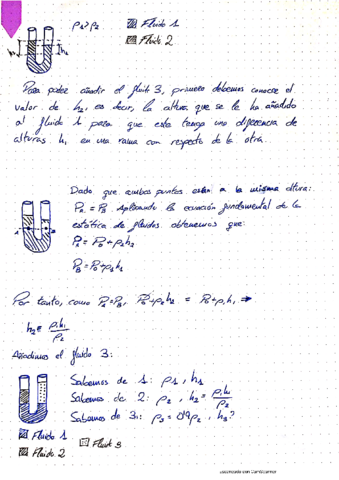 ρ₁>ρ₂ Fluido 1
Fluido 2
h₂ h₁
Para poder añadir el fluido 3, primero debemos conocer el
valor de h₂, es decir, la altura que se le ha añadido
al fluido 1 para que este tenga una diferencia de
alturas h₁ en una rama con respecto de la otra.
Dado que ambos puntos están a la misma altura:
P_A = P_B. Aplicando la ecuación fundamental de la
estática de fluidos obtenemos que:
A B
P_A = P₀ + ρ₂h₂
P_B = P₀ + ρ₁h₁
Por tanto, como P_A = P_B, P₀ + ρ₂h₂ = P₀ + ρ₁h₁ ⇒
h₂ = ρ₁h₁/ρ₂
Añadimos el fluido 3:
Sabemos de 1: ρ₁, h₁
Sabemos de 2: ρ₂, h₂ = ρ₁h₁/ρ₂
Sabemos de 3: ρ₃ = 0'9ρ₂, h₃?
Fluido 1 Fluido 3
Fluido 2
Escaneado con CamScanner